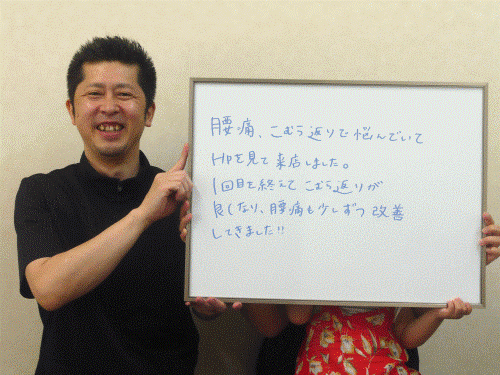 腰痛、こむら返りで悩んでいて
HPを見て来店しました。
1回目を終えてこむら返りが
良くなり、腰痛も少しずつ改善
してきました!!